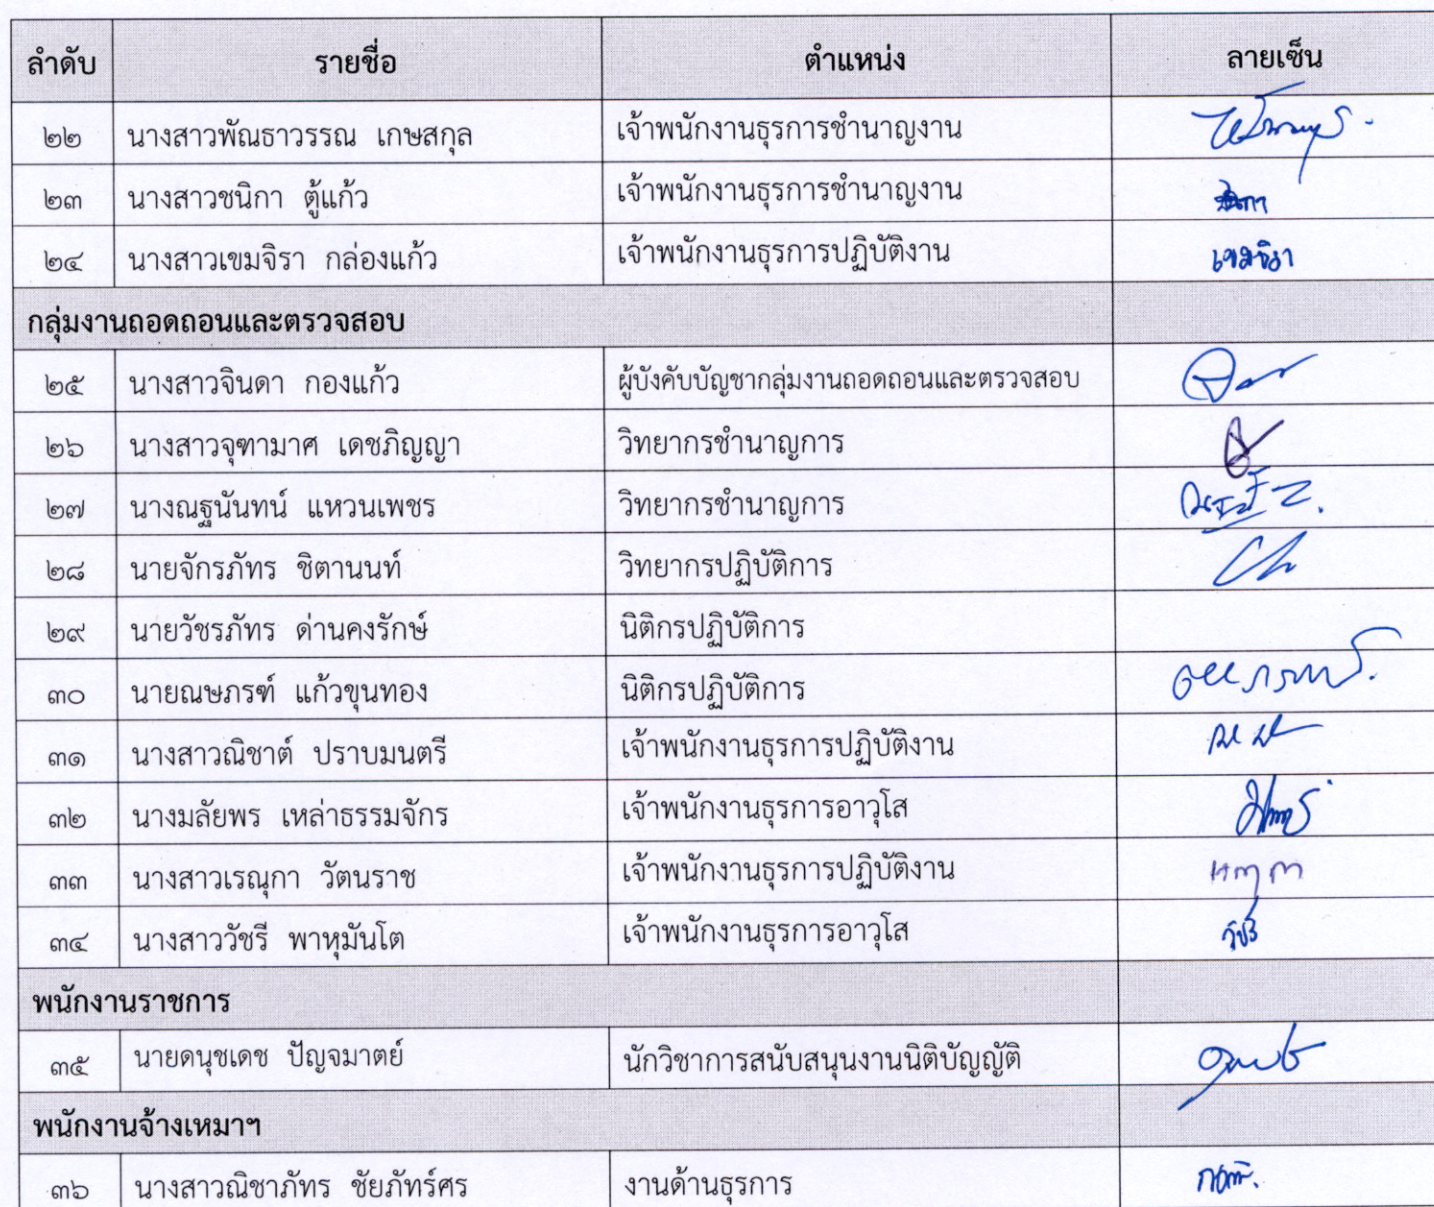 ลำดับ รายชื่อ ตำแหน่ง ลายเซ็น
๒๒ นางสาวพัณธาวรรณ เกษสกุล เจ้าพนักงานธุรการชำนาญงาน
๒๓ นางสาวชนิกา ตู้แก้ว เจ้าพนักงานธุรการชำนาญงาน ชนิกา
๒๔ นางสาวเขมจิรา กล่องแก้ว เจ้าพนักงานธุรการปฏิบัติงาน เขมจิรา
กลุ่มงานถอดถอนและตรวจสอบ
๒๕ นางสาวจินดา กองแก้ว ผู้บังคับบัญชากลุ่มงานถอดถอนและตรวจสอบ
๒๖ นางสาวจุฑามาศ เดชภิญญา วิทยากรชำนาญการ
๒๗ นางณฐนันทน์ แหวนเพชร วิทยากรชำนาญการ
๒๘ นายจักรภัทร ชิตานนท์ วิทยากรปฏิบัติการ
๒๙ นายวัชรภัทร ด่านคงรักษ์ นิติกรปฏิบัติการ
๓๐ นายณษภรฑ์ แก้วขุนทอง นิติกรปฏิบัติการ
๓๑ นางสาวณิชาต์ ปราบมนตรี เจ้าพนักงานธุรการปฏิบัติงาน
๓๒ นางมลัยพร เหล่าธรรมจักร เจ้าพนักงานธุรการอาวุโส
๓๓ นางสาวเรณุกา วัตนราช เจ้าพนักงานธุรการปฏิบัติงาน
๓๔ นางสาววัชรี พาหุมันโต เจ้าพนักงานธุรการอาวุโส วัชรี
พนักงานราชการ
๓๕ นายดนุชเดช ปัญจมาตย์ นักวิชาการสนับสนุนงานนิติบัญญัติ
พนักงานจ้างเหมาฯ
๓๖ นางสาวณิชาภัทร ชัยภัทร์ศร งานด้านธุรการ